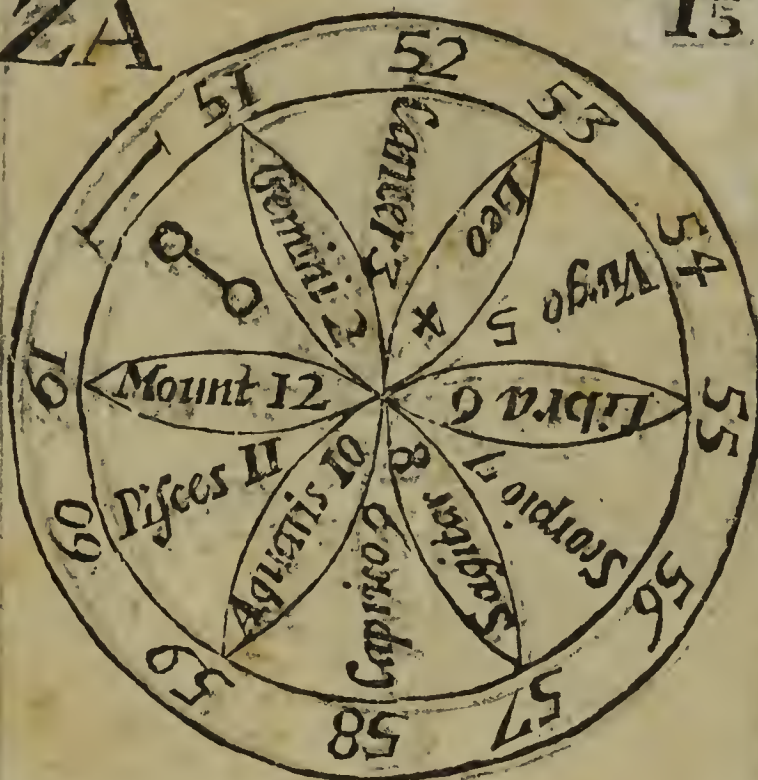 ZA
I
51
52
53
54
55
56
57
58
59
60
61
Gemini 2
Cancer 3
Leo 4
Virgo 5
Libra 6
Scorpio 7
Sagitar 8
9
Aquaris 10
Piſces 11
Mount 12